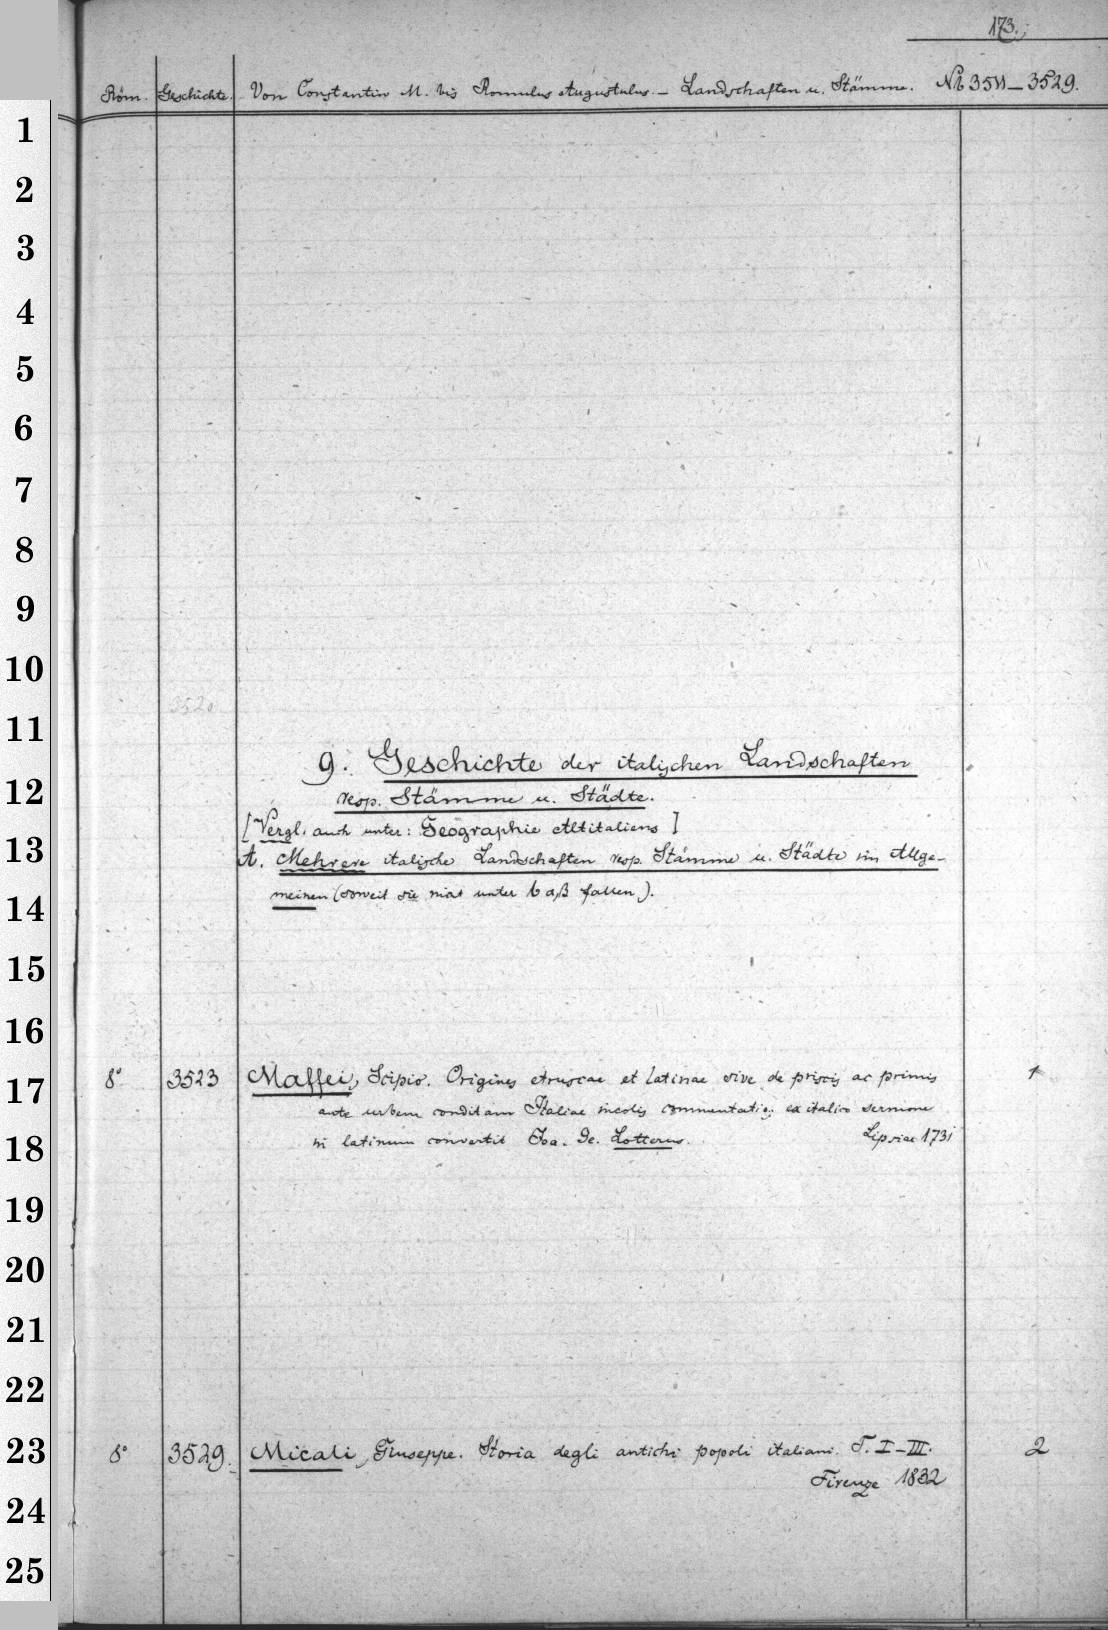 173.
Röm. Geschichte. Von Constantin M. bis Romulus Augustulus. — Landschaften u. Stämme. № 3511—3529.
1
2
3
4
5
6
7
8
9
10
3520
11
g. Geschichte der italischen Landschaften
12
resp. Stämme u. Städte.
[Vergl. auch unter: Geographie Altitaliens]
13
A. Mehrere italische Landschaften resp. Stämme u. Städte im Allge-
meinen (soweit sie nicht unter b α,β fallen).
14
15
16
17
8° 3523 Maffei, Scipio. Origines etruscae et latinae sive de priscis ac primis 1
ante urbem conditam Italiae incolis commentatio; ex italico sermone
18
in latinum convertit Joa. Ge. Lotterus. Lipsiae 1731
19
20
21
22
23
8° 3529. Micali, Giuseppe. Storia degli antichi popoli italiani. T. I—III. 2
Firenze 1832
24
25